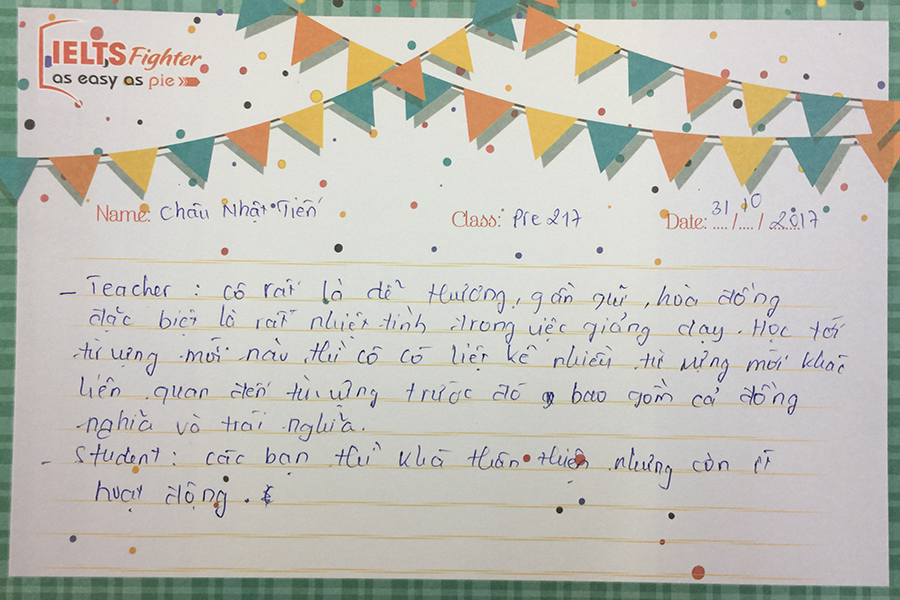 IELTS Fighter
as easy as pie
Name: Châu Nhật Tiến Class: Pre 217 Date: 31/10/2017
- Teacher : cô rất là dễ thương, gần gũi, hòa đồng
đặc biệt là rất nhiệt tình trong việc giảng dạy. Học tới
từ vựng mới nào thì cô có liệt kê nhiều từ vựng mới khác
liên quan đến từ vựng trước đó bao gồm cả đồng
nghĩa và trái nghĩa.
- Student : các bạn thì khá thân thiện nhưng còn ít
hoạt động.